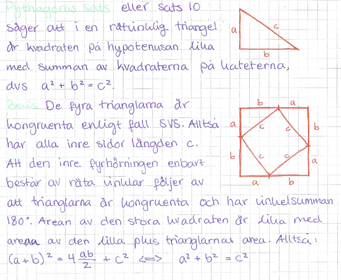 Pythagoras sats eller sats 10
säger att i en rätvinklig triangel
är kvadraten på hypotenusan lika
med summan av kvadraterna på kateterna,
dvs a² + b² = c².
a
c
b
Bevis De fyra trianglarna är
kongruenta enligt fall SVS. Alltså
har alla inre sidor längden c.
Att den inre fyrhörningen enbart
består av räta vinklar följer av
att trianglarna är kongruenta och har vinkelsumman
180°. Arean av den stora kvadraten är lika med
arean av den lilla plus trianglarnas area. Alltså:
(a+b)² = 4 ab/2 + c² <=> a² + b² = c²
b a
a c c b
b c c a
a b